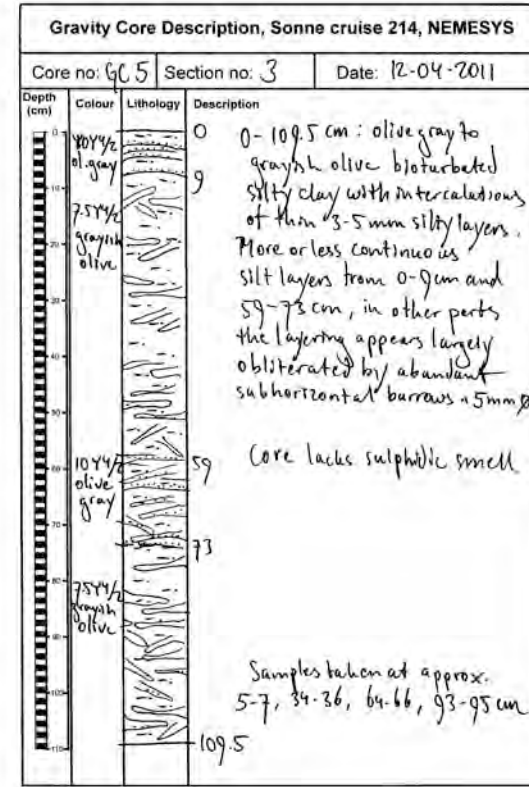 Gravity Core Description, Sonne cruise 214, NEMESYS
Core no: GC 5 Section no: 3 Date: 12-04-2011
Depth (cm) Colour Lithology Description
0
10Y4/2
ol.gray
7.5Y4/2
grayish
olive
10Y4/2
olive
gray
7.5Y4/2
grayish
olive
0
9
59
73
109.5
0-109.5 cm: olive gray to
grayish olive bioturbated
silty clay with intercalations
of thin 3-5 mm silty layers.
More or less continuous
silt layers from 0-9 cm and
59-73 cm, in other parts
the layering appears largely
obliterated by abundant
subhorizontal burrows ~5mm ø
Core lacks sulphidic smell
Samples taken at approx.
5-7, 34-36, 64-66, 93-95 cm
20
30
40
50
60
70
80
90
100
110